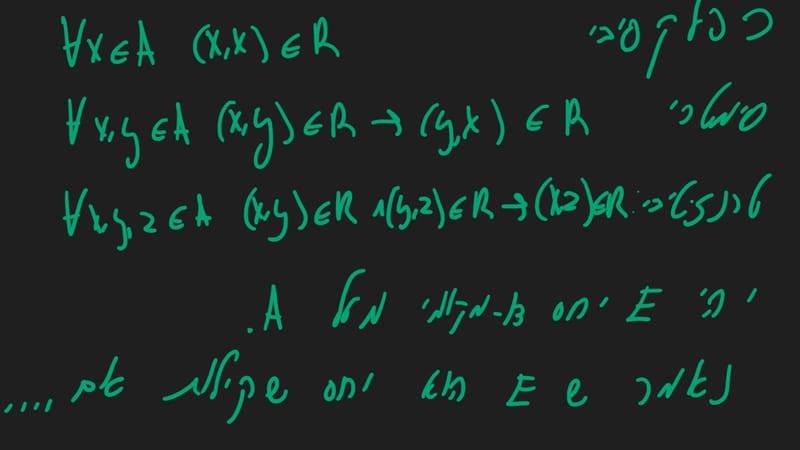 רפלקסיבי ∀x∈A (x,x)∈R
סימטרי ∀x,y∈A (x,y)∈R→(y,x)∈R
טרנזיטיבי: ∀x,y,z∈A (x,y)∈R∧(y,z)∈R→(x,z)∈R
יהי E יחס דו-מקומי מעל A.
נאמר ש E הוא יחס שקילות אם ....